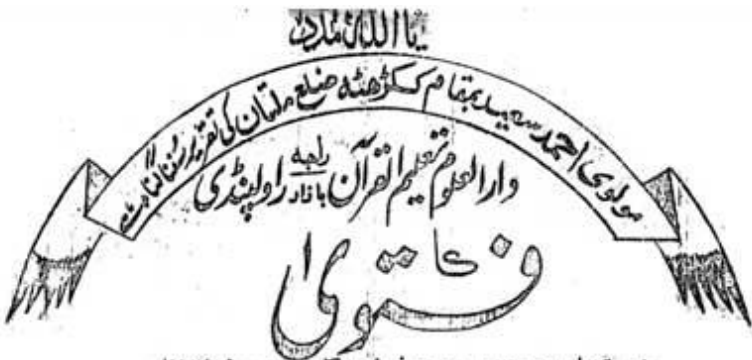 یا اللہ مدد
مولوی احمد سعید بمقام ککڑھٹہ ضلع ملتان کی تقریر سننا گناہ ہے
دارالعلوم تعلیم القرآن راجہ بازار راولپنڈی
کا فتویٰ